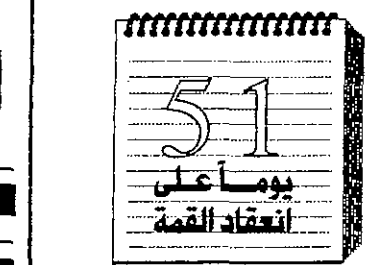 51
يوماً على
انعقاد القمة